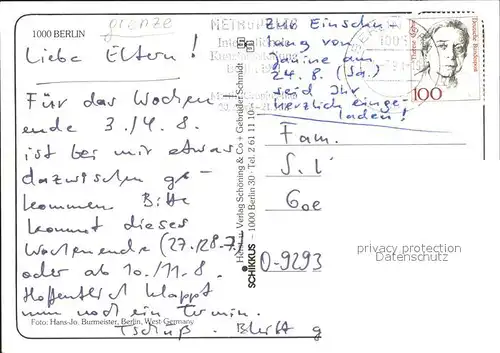 1000 BERLIN
grenze
Liebe Eltern!
Für das Wochen-
ende 3./4.8.
ist bei mir etwas
dazwischen ge-
kommen. Bitte
kommt dieses
Wochenende (27./28.7.)
oder ab 10./11.8.
Hoffentlich klappt
nun noch ein Termin.
Tschüß.
Foto: Hans-Jo. Burmeister, Berlin, West-Germany
Zur Einschu-
lung von
Janine am
24.8. (Sa.)
seid Ihr
herzlich einge-
laden!
Verlag Schöning & Co + Gebrüder Schmidt
SCHIKKUS - 1000 Berlin 30 · Tel. 2 61 11 10
Deutsche Bundespost
100
Fam.
S. L
Goe
O-9293
privacy protection
Datenschutz